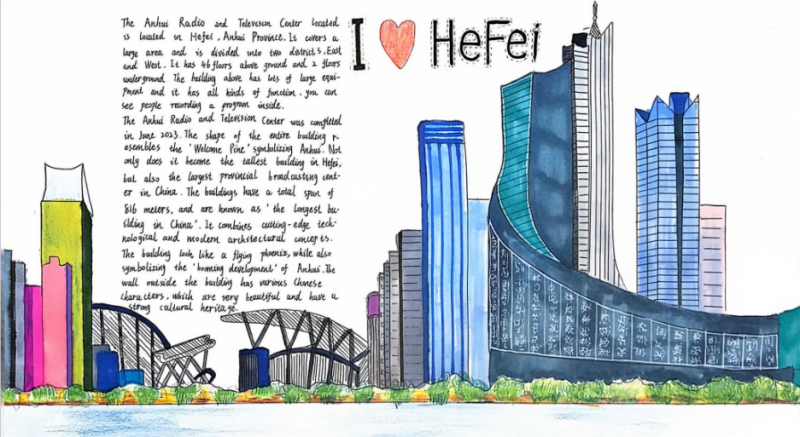 I ♥ HeFei
The Anhui Radio and Television Center located
is located in Hefei, Anhui Province. Is covers a
large area and is divided into two districts, East
and West. It has 46 floors above ground and 2 floors
underground. The building above has lots of large equi-
pment and it has all kinds of function, you can
see people recording a program inside.
The Anhui Radio and Television Center was completed
in June 2023. The shape of the entire building r-
esembles the 'Welcome Pine' symbolizing Anhui. Not
only does it become the tallest building in Hefei,
but also the largest provincial broadcasting cent-
er in China. The buildings have a total span of
816 meters, and are known as 'the longest bu-
ilding in China'. It combines cutting-edge tech-
nological and modern architectural concepts.
The building look like a flying phoenix, while also
symbolizing the 'booming development' of Anhui. The
wall outside the building has various Chinese
characters, which are very beautiful and have a
strong cultural heritage.